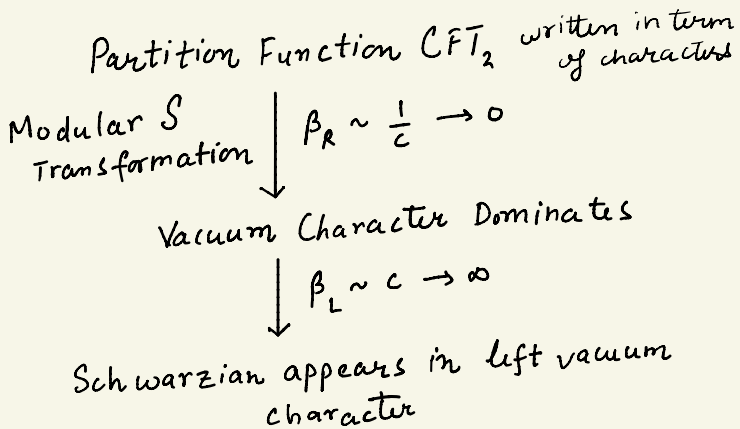 Partition Function CFT₂ written in term
of characters
Modular S
Transformation
β_R ~ 1/c → 0
Vacuum Character Dominates
β_L ~ c → ∞
Schwarzian appears in left vacuum
character